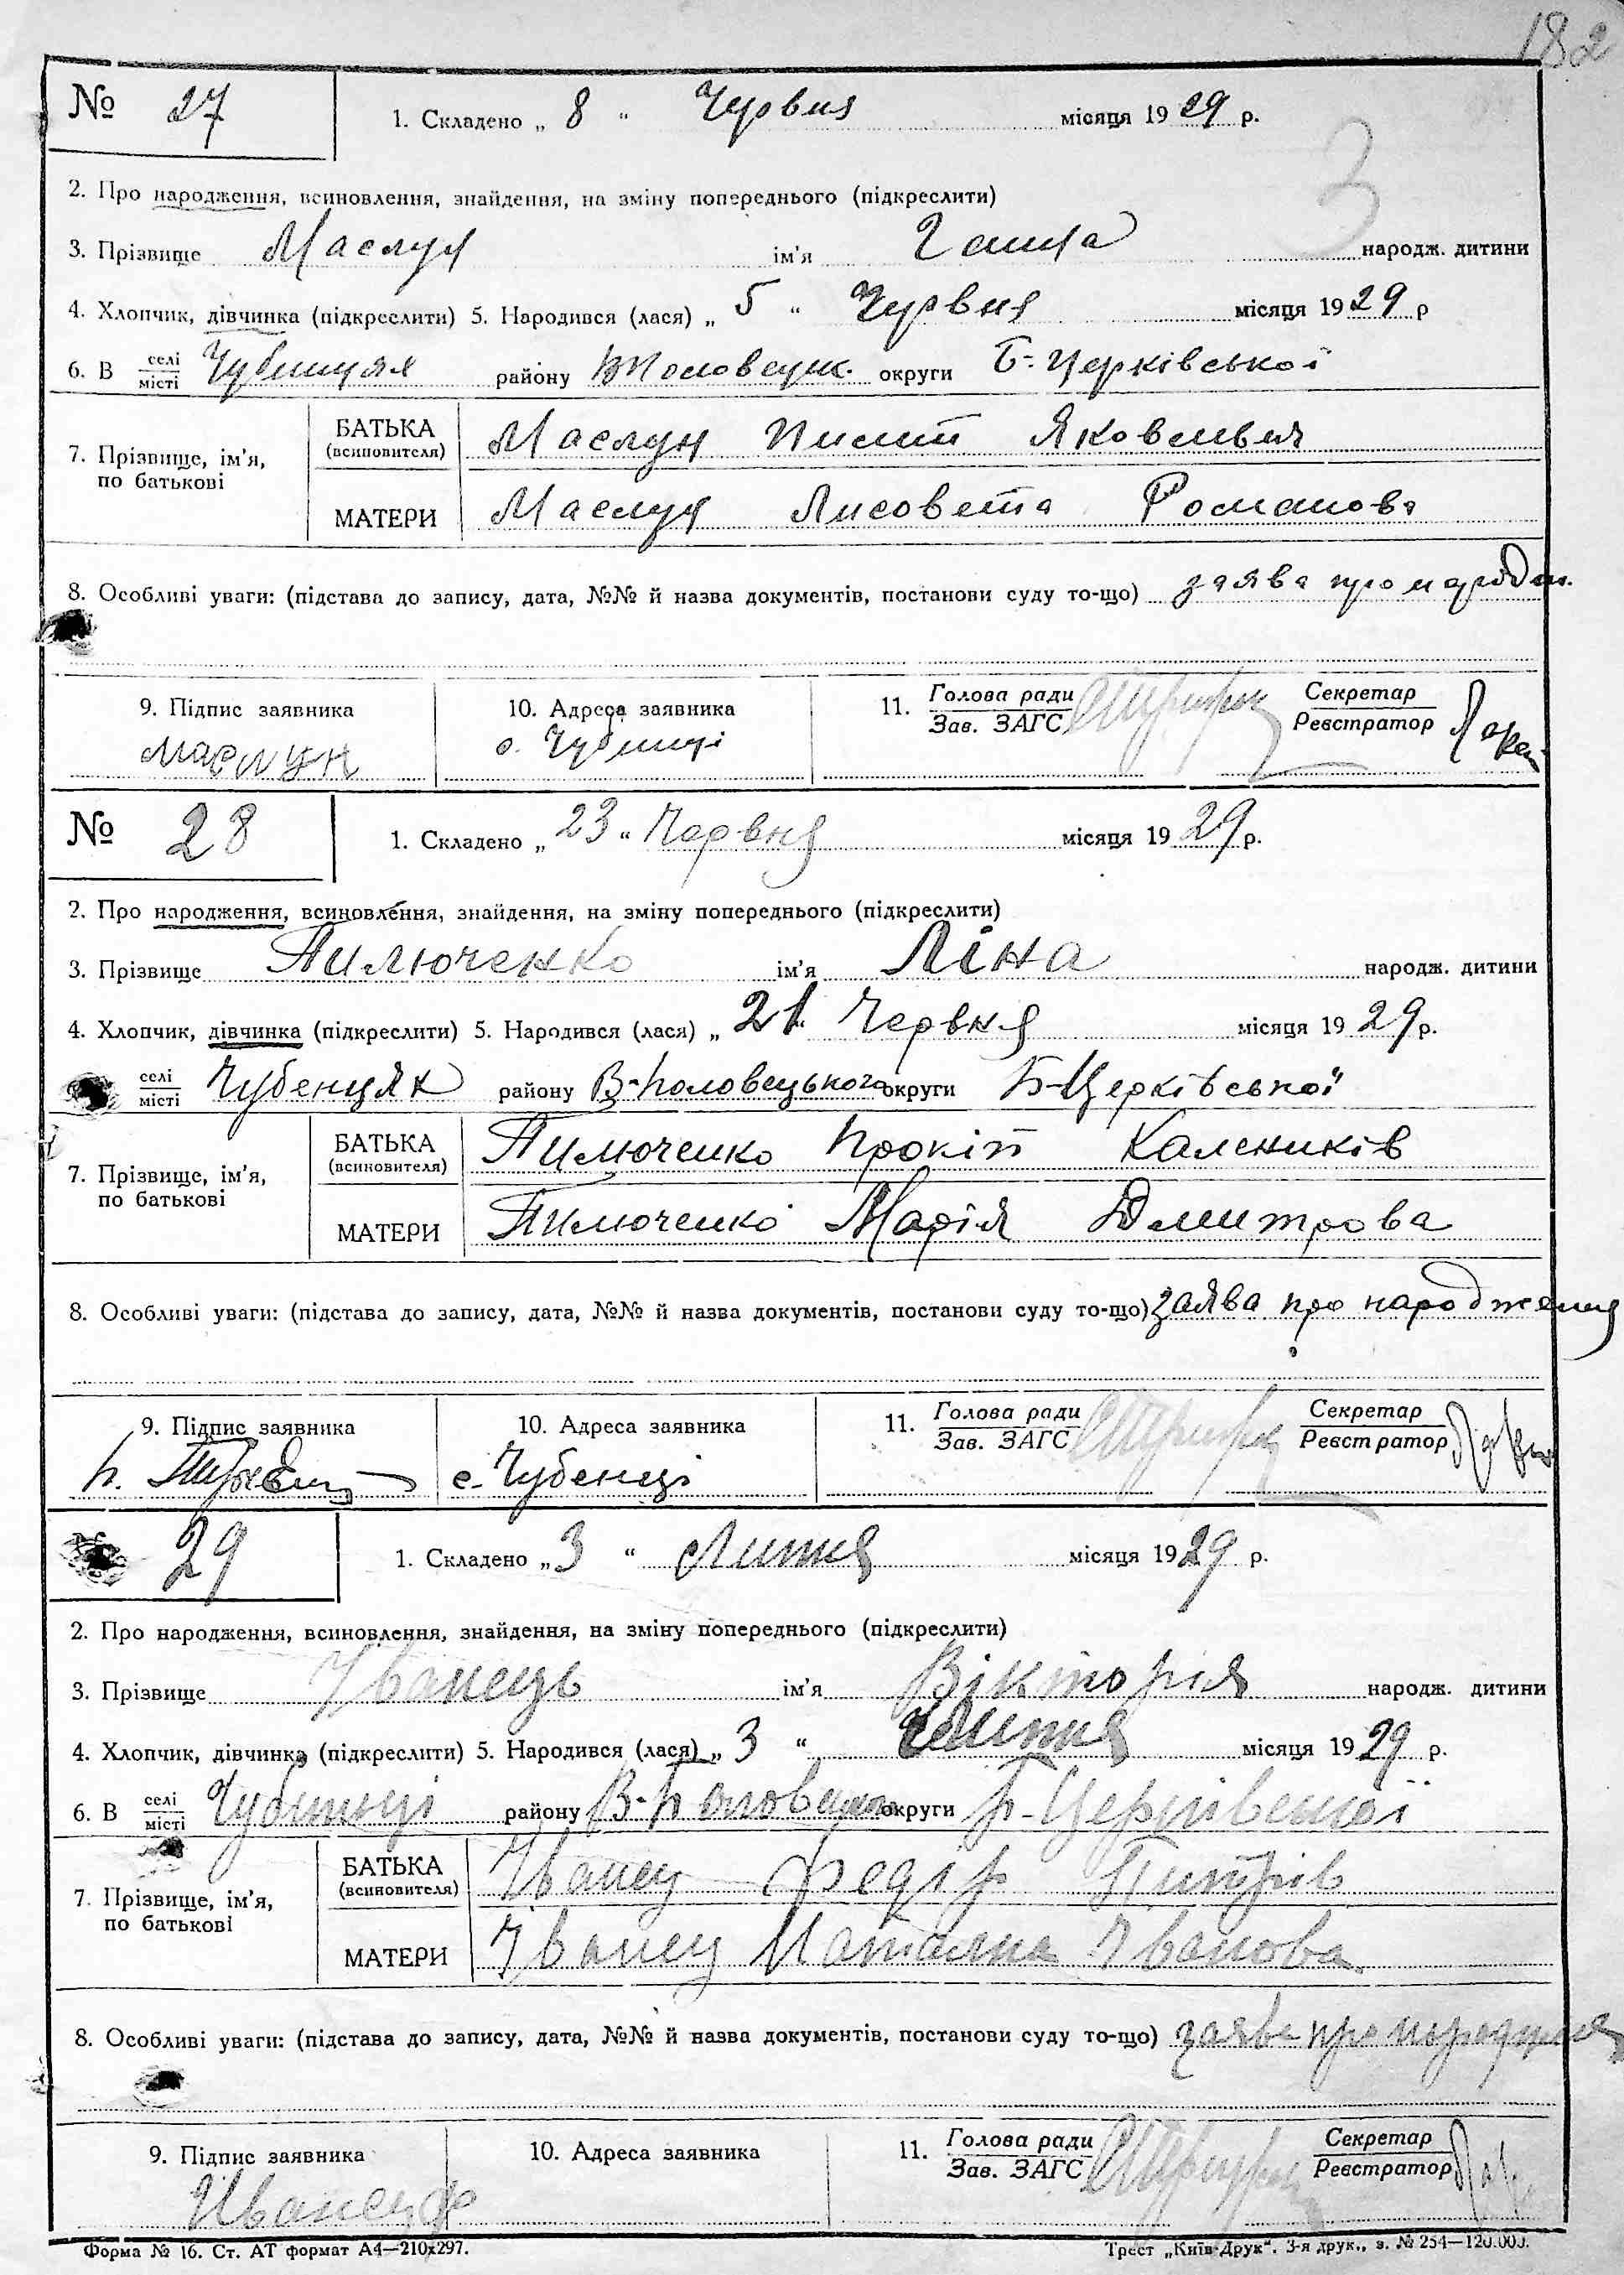 182
№ 27 1. Складено „ 8 “ Червня місяця 1929 р.
3
2. Про народження, всиновлення, знайдення, на зміну попереднього (підкреслити)
3. Прізвище Маслун ім'я Ганна народж. дитини
4. Хлопчик, дівчинка (підкреслити) 5. Народився (лася) „ 5 “ Червня місяця 1929 р
6. В селі місті Чубинцях району ВПоловецьк. округи Б-Церківської
БАТЬКА (всиновителя) Маслун Яковльвич
7. Прізвище, ім'я, по батькові
МАТЕРИ Маслун Лисовета Романова
8. Особливі уваги: (підстава до запису, дата, №№ й назва документів, постанови суду то-що) заява про народж.
9. Підпис заявника 10. Адреса заявника 11. Голова ради Зав. ЗАГС Секретар Реєстратор
Маслун с. Чубинці
№ 28 1. Складено „ 23 “ Червня місяця 1929 р.
2. Про народження, всиновлення, знайдення, на зміну попереднього (підкреслити)
3. Прізвище Пилюченко ім'я Ліна народж. дитини
4. Хлопчик, дівчинка (підкреслити) 5. Народився (лася) „ 21 “ Червня місяця 1929 р.
селі місті Чубенцях району В-Половецького округи Б-Церківської
БАТЬКА (всиновителя) Пилюченко Прокіп Калеників
7. Прізвище, ім'я, по батькові
МАТЕРИ Пилюченко Марія Дмитрова
8. Особливі уваги: (підстава до запису, дата, №№ й назва документів, постанови суду то-що) заява про народження
9. Підпис заявника 10. Адреса заявника 11. Голова ради Зав. ЗАГС Секретар Реєстратор
с. Чубенці
№ 29 1. Складено „ 3 “ Липня місяця 1929 р.
2. Про народження, всиновлення, знайдення, на зміну попереднього (підкреслити)
3. Прізвище Іванець ім'я Вікторія народж. дитини
4. Хлопчик, дівчинка (підкреслити) 5. Народився (лася) „ 3 “ Липня місяця 1929 р.
6. В селі місті Чубинці району В-Половецьк округи Б-Церківської
БАТЬКА (всиновителя) Іванец Федір Питрів
7. Прізвище, ім'я, по батькові
МАТЕРИ Іванец Наталка Іванова
8. Особливі уваги: (підстава до запису, дата, №№ й назва документів, постанови суду то-що) заява про народження
9. Підпис заявника 10. Адреса заявника 11. Голова ради Зав. ЗАГС Секретар Реєстратор
Иванец Ф
Форма № 16. Ст. АТ формат А4—210х297. Трест „Київ-Друк“. 3-я друк., з. № 254—120.000.